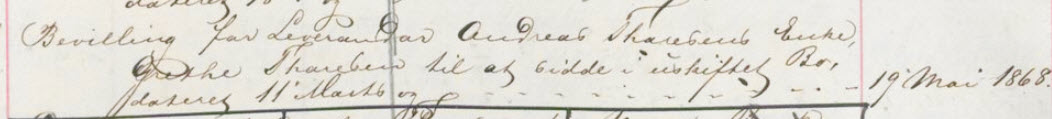 dateret 10' og
Bevilling for Leverandør Andreas Thoresens Enke,
Grethe Thoresen til at sidde i uskiftet Bo,
dateret 11' Marts og - - - - - - - - - - 19' Mai 1868.